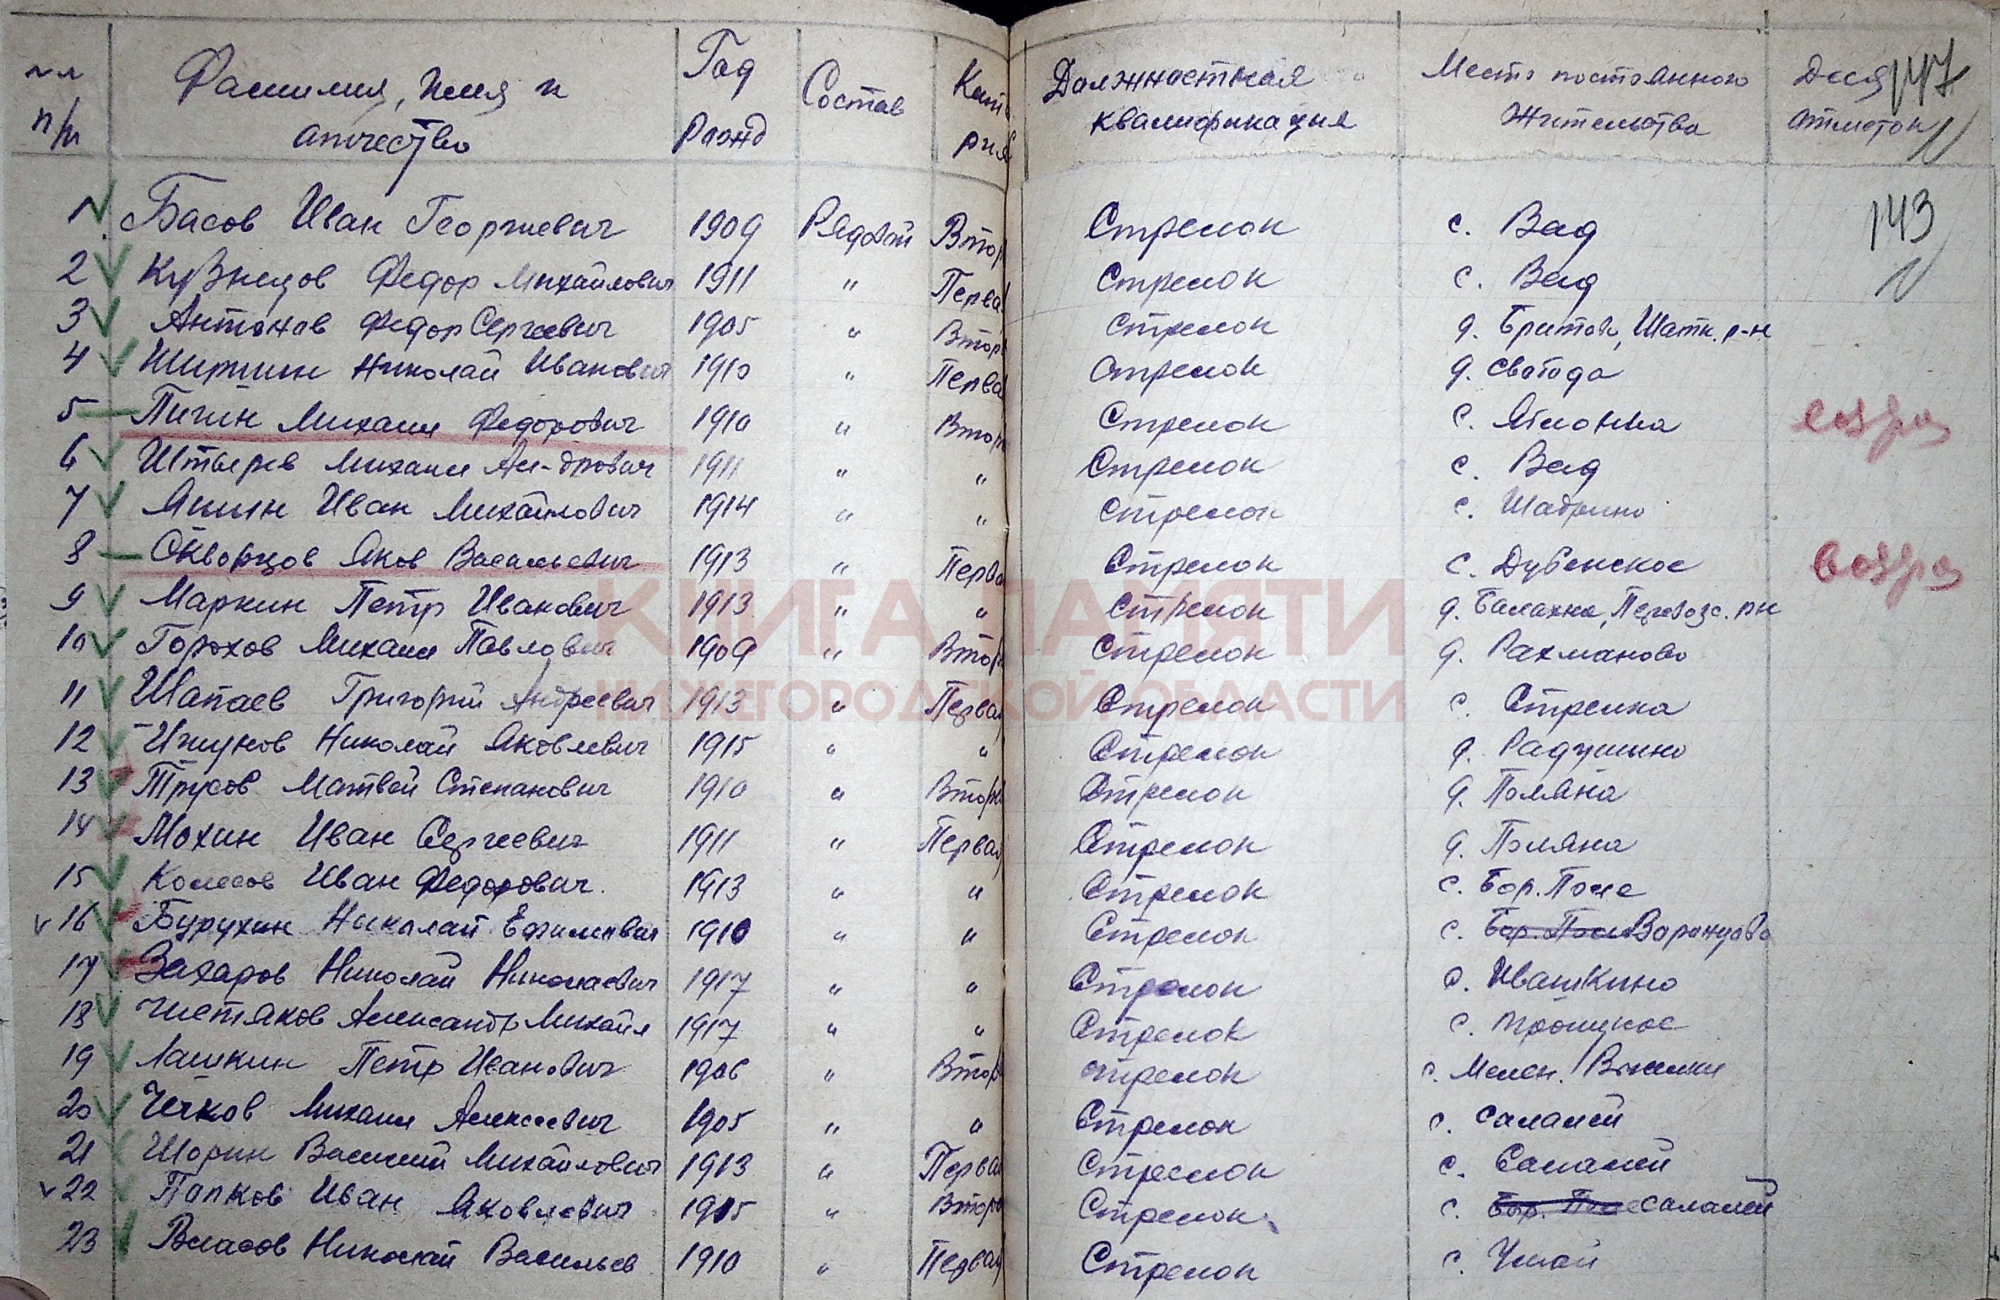 №№ п/п Фамилия, имя и отчество Год рожд Состав Кате рия Должностная квалификация Место постоянного жительства Для отметок 147
1 Басов Иван Георгиевич 1909 Рядовой Втор Стрелок с. Вад 143
2 Кузнецов Федор Михайлович 1911 " Первая Стрелок с. Вад
3 Антонов Федор Сергеевич 1905 " Втор Стрелок д. Шатк. р-н
4 Ширшин Николай Иванович 1910 " Перва Стрелок д. Свобода
5 Пигин Михаил Федорович 1910 " Втор Стрелок с. Яблонка возвра
6 Штырев Михаил Ал-дрович 1911 " " Стрелок с. Вад
7 Яшин Иван Михайлович 1914 " " Стрелок с. Шадрино
8 Скворцов Яков Васильевич 1913 " Перва Стрелок с. Дубенское возвра
КНИГА ПАМЯТИ
9 Маркин Петр Иванович 1913 " " Стрелок д. Балахна, Перевозс. рн
10 Горохов Михаил Павлович 1909 " Втор Стрелок д. Рахманово
НИЖЕГОРОДСКОЙ ОБЛАСТИ
11 Шапаев Григорий Андреевич 1913 " Первая Стрелок с. Стрелка
12 Николай Яковлевич 1915 " " Стрелок д. Радушино
13 Трусов Матвей Степанович 1910 " Втора Стрелок д. Поляна
14 Мохин Иван Сергеевич 1911 " Первая Стрелок д. Поляна
15 Колесов Иван Федорович. 1913 " " Стрелок с. Бор. Поле
v 16 Бурухин Николай Ефимович 1910 " " Стрелок с. Бор. Поле Воронцово
17 Захаров Николай Николаевич 1917 " " Стрелок с. Ивашкино
18 Чистяков Александр Михайл 1917 " " Стрелок с.
19 Лашкин Петр Иванович 1906 " Втор Стрелок с. Мелен.
20 Чечков Михаил Алексеевич 1905 " " Стрелок с. Салалей
21 Шорин Василий Михайлович 1913 " Первая Стрелок с. Салалей
v 22 Папков Иван Яковлевич 1905 " Втора Стрелок с. Бор. Поле Салалей
23 Власов Николай Васильев 1910 " Первая Стрелок с. Умай